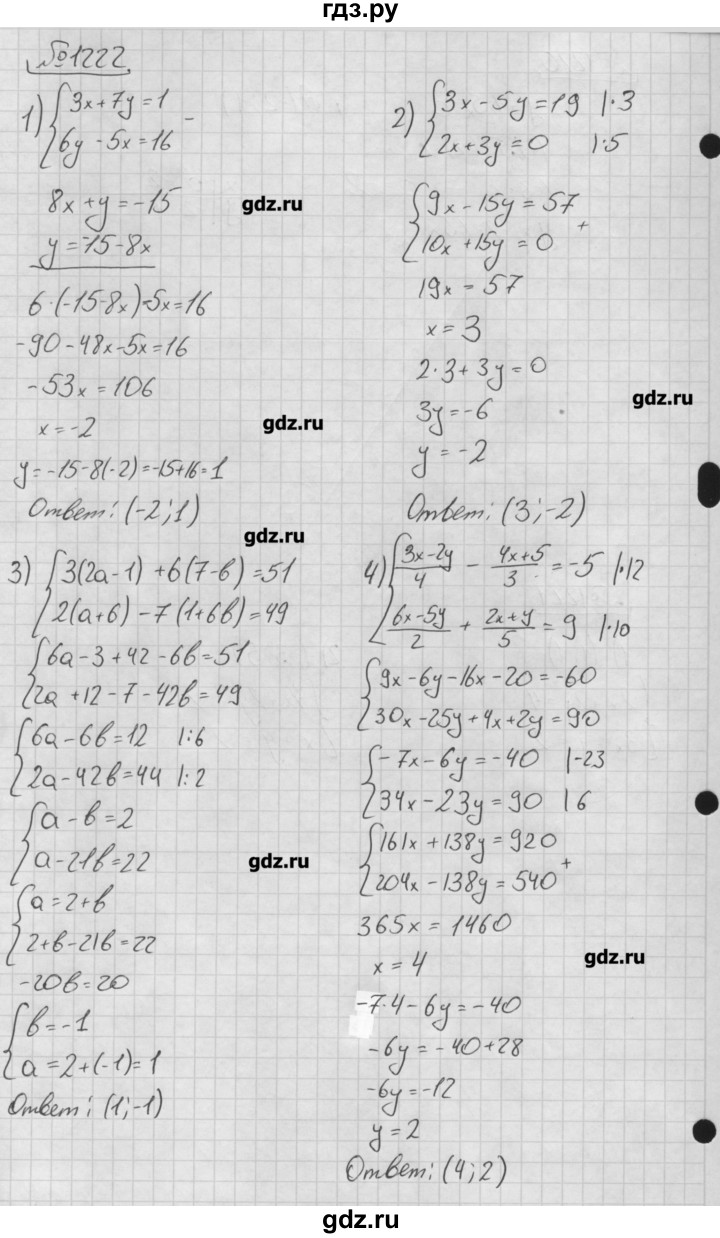 гдз.ру
№1222
1) {3x+7y=1 -
{6y-5x=16
8x+y=-15
y=-15-8x
6·(-15-8x)-5x=16
-90-48x-5x=16
-53x=106
x=-2
y=-15-8(-2)=-15+16=1
Ответ: (-2;1)
2) {3x-5y=19 |·3
{2x+3y=0 |·5
{9x-15y=57
{10x+15y=0 +
19x=57
x=3
2·3+3y=0
3y=-6
y=-2
Ответ: (3;-2)
3) {3(2a-1)+6(7-b)=51
{2(a+6)-7(1+6b)=49
{6a-3+42-6b=51
{2a+12-7-42b=49
{6a-6b=12 |:6
{2a-42b=44 |:2
{a-b=2
{a-21b=22
{a=2+b
{2+b-21b=22
-20b=20
{b=-1
{a=2+(-1)=1
Ответ: (1;-1)
4) {(3x-2y)/4 - (4x+5)/3 = -5 |·12
{(6x-5y)/2 + (2x+y)/5 = 9 |·10
{9x-6y-16x-20=-60
{30x-25y+4x+2y=90
{-7x-6y=-40 |-23
{34x-23y=90 |6
{161x+138y=920
{204x-138y=540 +
365x=1460
x=4
-7·4-6y=-40
-6y=-40+28
-6y=-12
y=2
Ответ: (4;2)
gdz.ru
gdz.ru
gdz.ru
gdz.ru
gdz.ru
gdz.ru
gdz.ru